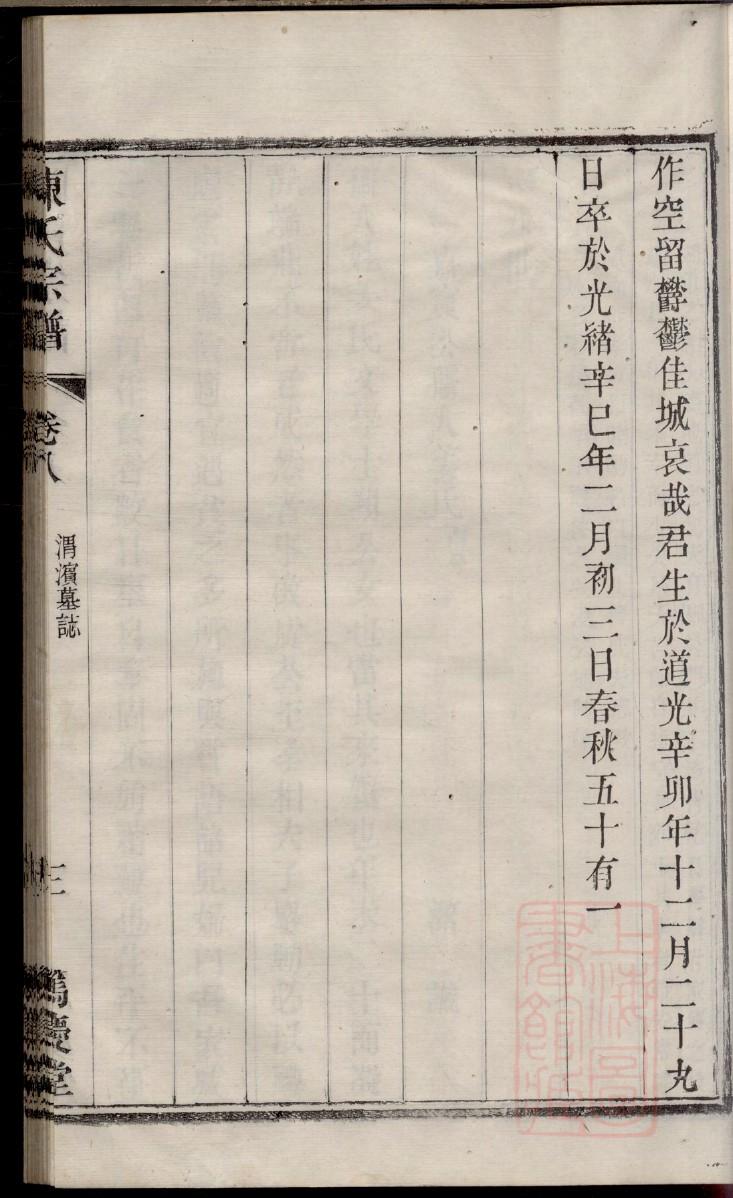 作空留欝鬱佳城哀哉君生於道光辛卯年十二月二十九
日卒於光緒辛巳年二月初三日春秋五十有一
陳氏宗譜
卷八
渭濱墓誌
篤慶堂
上海圖書館藏